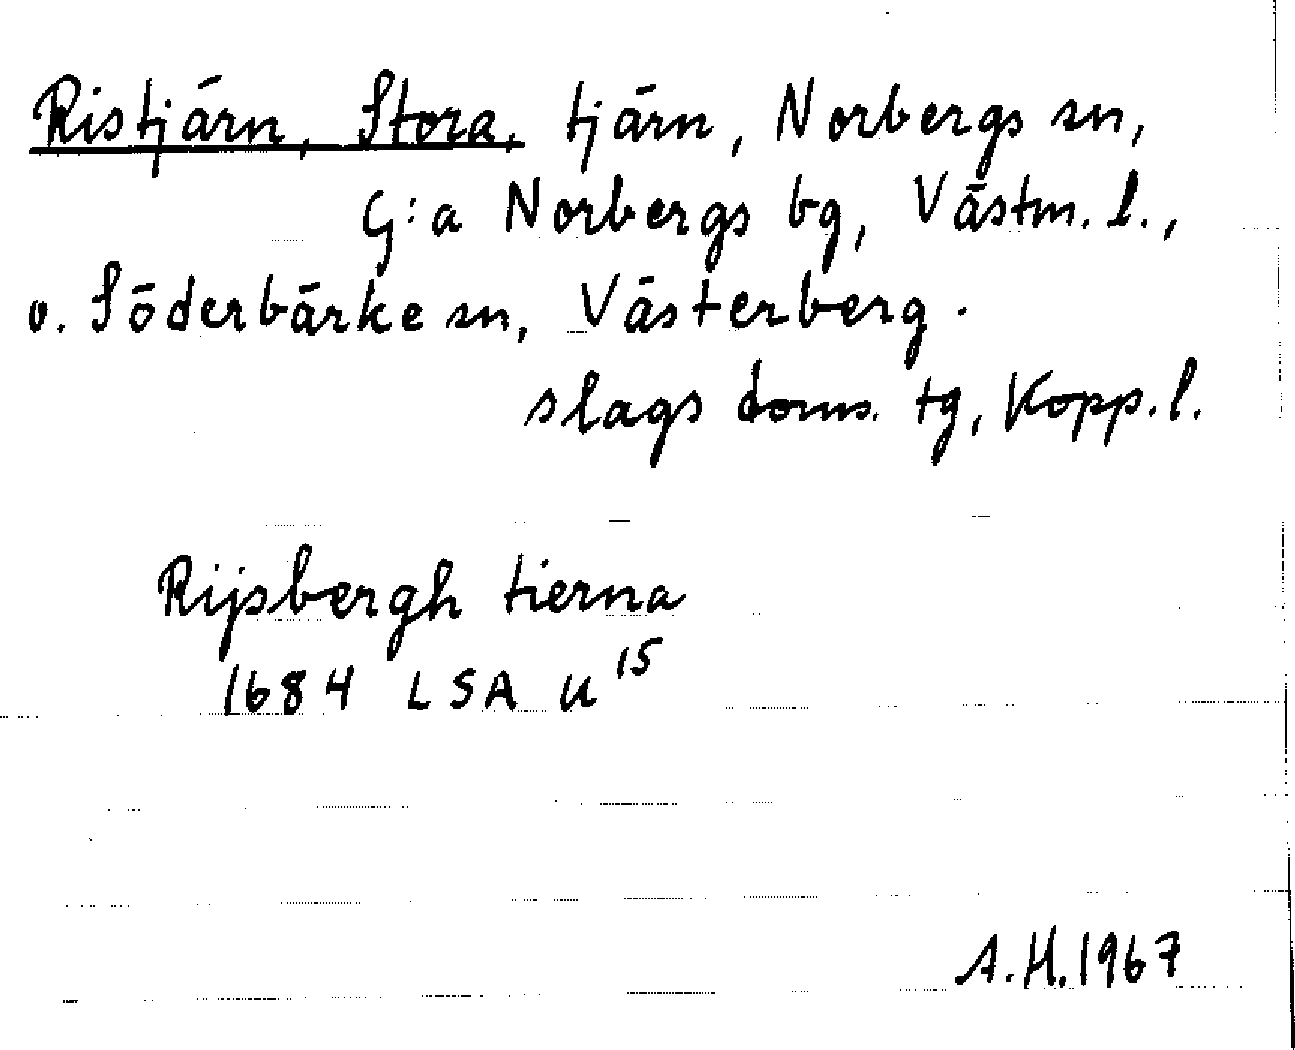 Ristjärn, Stora, tjärn, Norbergs sn,
G:a Norbergs bg, Västm. l.,
o. Söderbärke sn, Västerberg.
slags doms. tg, Kopp. l.
Rijsbergh tierna
1684 LSA U 15
A.H. 1967